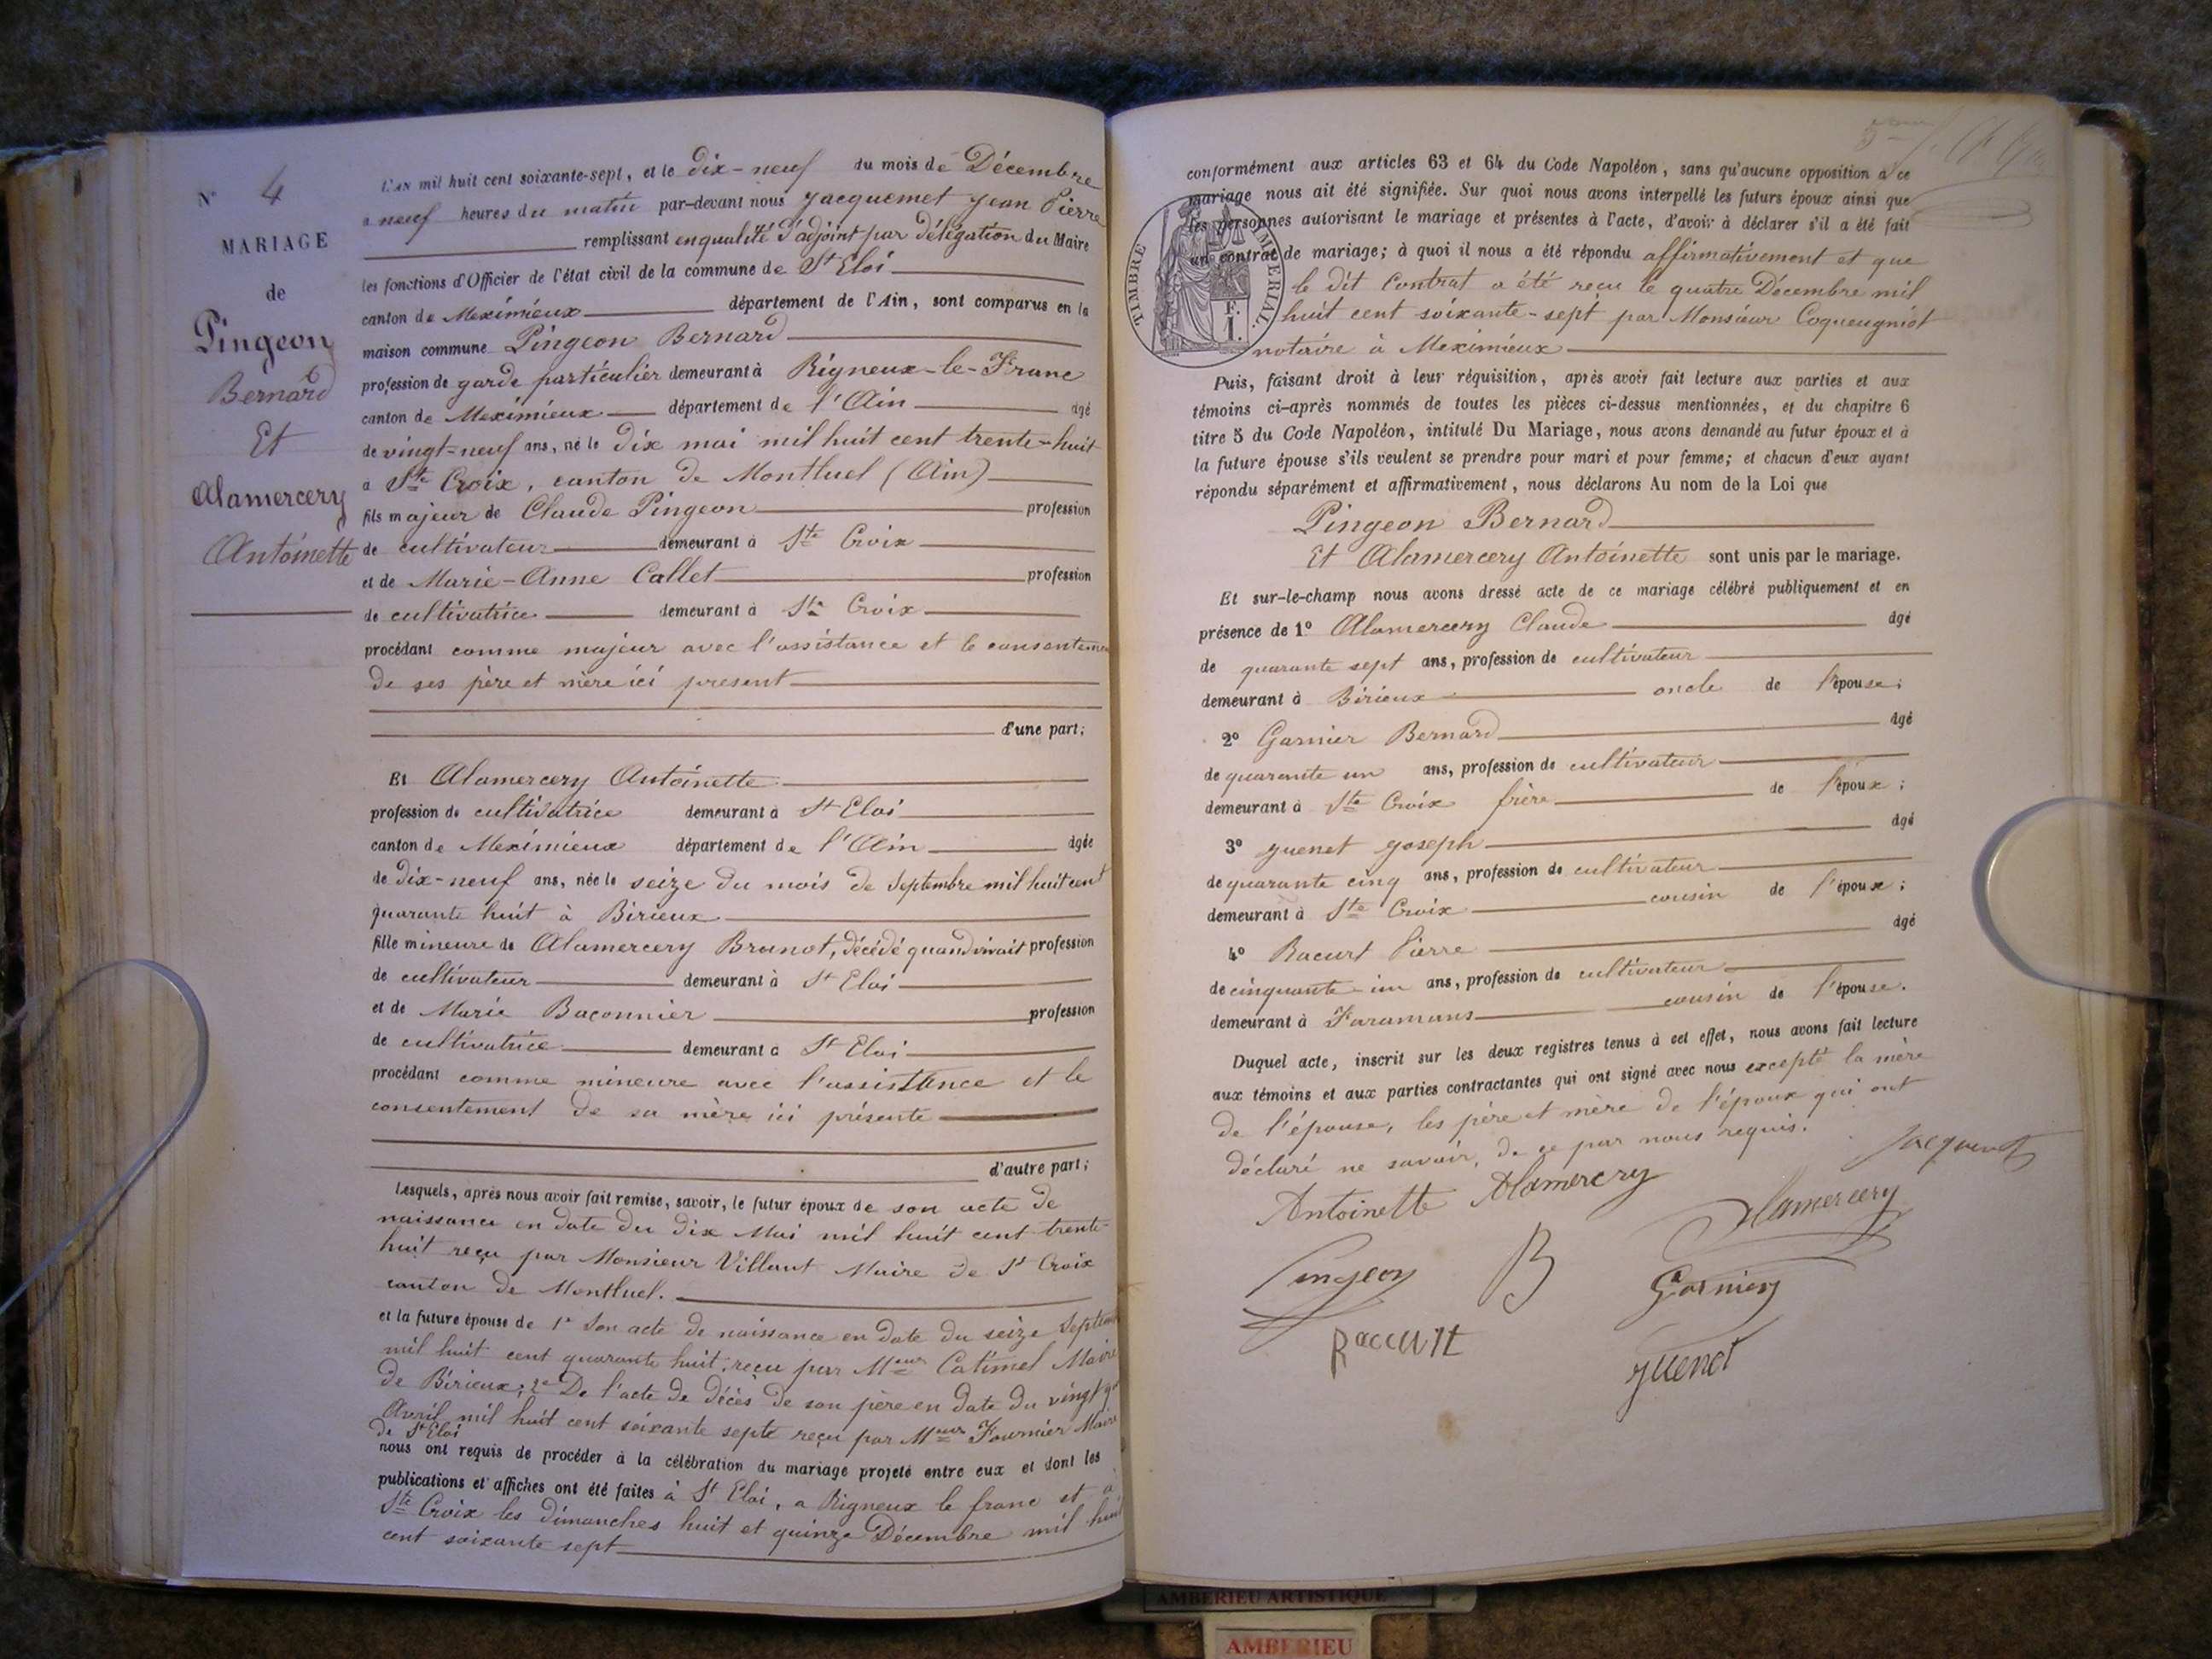 N° 4
MARIAGE
de
Pingeon
Bernard
Et
Alamercery
Antoinette
L'AN mil huit cent soixante-sept, et le dix-neuf du mois de Décembre
a neuf heures du matin par-devant nous Jacquemet Jean Pierre
remplissant en qualité d'adjoint par délégation du Maire
les fonctions d'Officier de l'état civil de la commune de St Eloi
canton de Meximieux département de l'Ain, sont comparus en la
maison commune Pingeon Bernard
profession de garde particulier demeurant à Rigneux-le-Franc
canton de Meximieux département de l'Ain âgé
de vingt-neuf ans, né le dix mai mil huit cent trente-huit
a Ste Croix, canton de Montluel (Ain)
fils majeur de Claude Pingeon profession
de cultivateur demeurant à Ste Croix
et de Marie-Anne Callet profession
de cultivatrice demeurant à Ste Croix
procédant comme majeur avec l'assistance et le consenteme
de ses père et mère ici présent
d'une part;
Et Alamercery Antoinette
profession de cultivatrice demeurant à St Eloi
canton de Meximieux département de l'Ain âgée
de dix-neuf ans, née le seize du mois de Septembre mil huit cent
quarante huit à Birieux
fille mineure de Alamercery Brunot, décédé quand vivait profession
de cultivateur demeurant à St Eloi
et de Marie Baconnier profession
de cultivatrice demeurant à St Eloi
procédant comme mineure avec l'assistance et le
consentement de sa mère ici présente
d'autre part;
Lesquels, après nous avoir fait remise, savoir, le futur époux de son acte de
naissance en date du dix Mai mil huit cent trente-
huit reçu par Monsieur Villant Maire de St Croix
canton de Montluel.
et la future épouse de 1° Son acte de naissance en date du seize Septem
mil huit cent quarante huit, reçu par Meur Catimel Maire
de Birieux; 2° De l'acte de décès de son père en date du vingt
Avril mil huit cent soixante septe reçu par Meur Fournier Maire
de St Eloi
nous ont requis de procéder à la célébration du mariage projeté entre eux et dont les
publications et affiches ont été faites à St Eloi, a Rigneux le franc et à
Ste Croix les dimanches huit et quinze Décembre mil huit
cent soixante sept
conformément aux articles 63 et 64 du Code Napoléon, sans qu'aucune opposition à ce
mariage nous ait été signifiée. Sur quoi nous avons interpellé les futurs époux ainsi que
les personnes autorisant le mariage et présentes à l'acte, d'avoir à déclarer s'il a été fait
un contrat de mariage; à quoi il nous a été répondu affirmativement et que
le dit Contrat a été reçu le quatre Décembre mil
huit cent soixante-sept par Monsieur Coqueugniot
notaire à Meximieux
TIMBRE IMPERIAL.
E.
I.
Puis, faisant droit à leur réquisition, après avoir fait lecture aux parties et aux
témoins ci-après nommés de toutes les pièces ci-dessus mentionnées, et du chapitre 6
titre 5 du Code Napoléon, intitulé Du Mariage, nous avons demandé au futur époux et à
la future épouse s'ils veulent se prendre pour mari et pour femme; et chacun d'eux ayant
répondu séparément et affirmativement, nous déclarons Au nom de la Loi que
Pingeon Bernard
Et Alamercery Antoinette sont unis par le mariage.
Et sur-le-champ nous avons dressé acte de ce mariage célébré publiquement et en
présence de 1° Alamercery Claude âgé
de quarante sept ans, profession de cultivateur
demeurant à Birieux oncle de l'épouse;
2° Garnier Bernard âgé
de quarante un ans, profession de cultivateur
demeurant à Ste Croix frère de l'époux;
3° Guenet Joseph âgé
de quarante cinq ans, profession de cultivateur
demeurant à Ste Croix cousin de l'époux;
4° Racurt Pierre âgé
de cinquante-un ans, profession de cultivateur
demeurant à Faramans cousin de l'épouse.
Duquel acte, inscrit sur les deux registres tenus à cet effet, nous avons fait lecture
aux témoins et aux parties contractantes qui ont signé avec nous excepté la mère
de l'épouse, les père et mère de l'époux qui ont
déclaré ne savoir, de ce par nous requis.
Jacquemet
Antoinette Alamercery
Alamercery
Pingeon B
Garnier
Raccurt
Guenet
AMBERIEU ARTISTIQUE
AMBERIEU